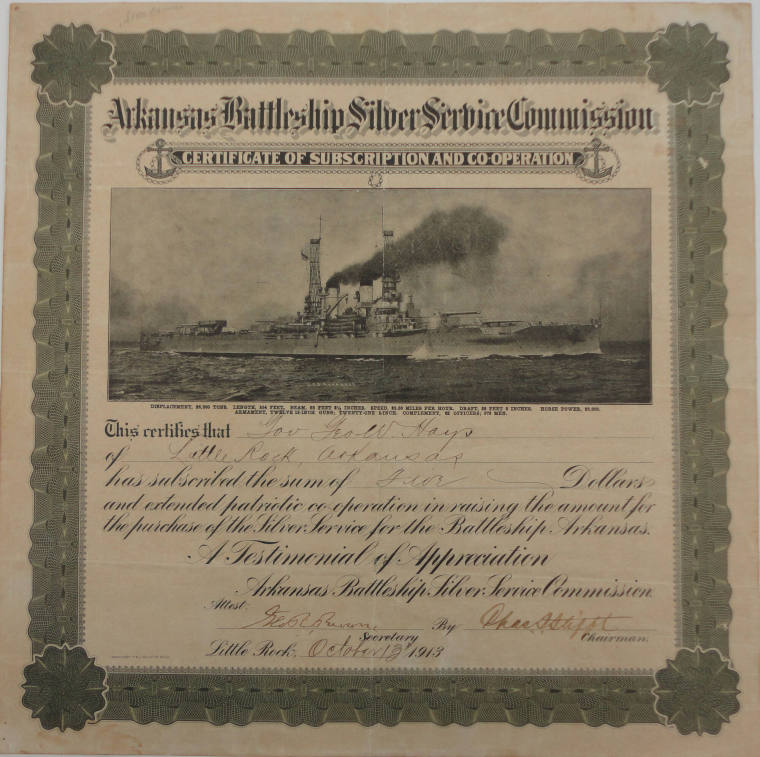 Arkansas Battleship Silver Service Commission
CERTIFICATE OF SUBSCRIPTION AND CO-OPERATION
DISPLACEMENT, 26,000 TONS. LENGTH, 554 FEET. BEAM, 93 FEET INCHES. SPEED, MILES PER HOUR. DRAFT, 28 FEET 6 INCHES. HORSE POWER,
ARMAMENT, TWELVE 12-INCH GUNS; TWENTY-ONE 5-INCH. COMPLEMENT, OFFICERS; MEN.
This certifies that Gov Geo W. Hays
of Little Rock, Arkansas
has subscribed the sum of Five Dollars
and extended patriotic co-operation in raising the amount for
the purchase of the Silver Service for the Battleship Arkansas.
A Testimonial of Appreciation
Arkansas Battleship Silver Service Commission.
Attest:
Geo R Brown, By Chas
Secretary Chairman.
Little Rock, October 13 1913